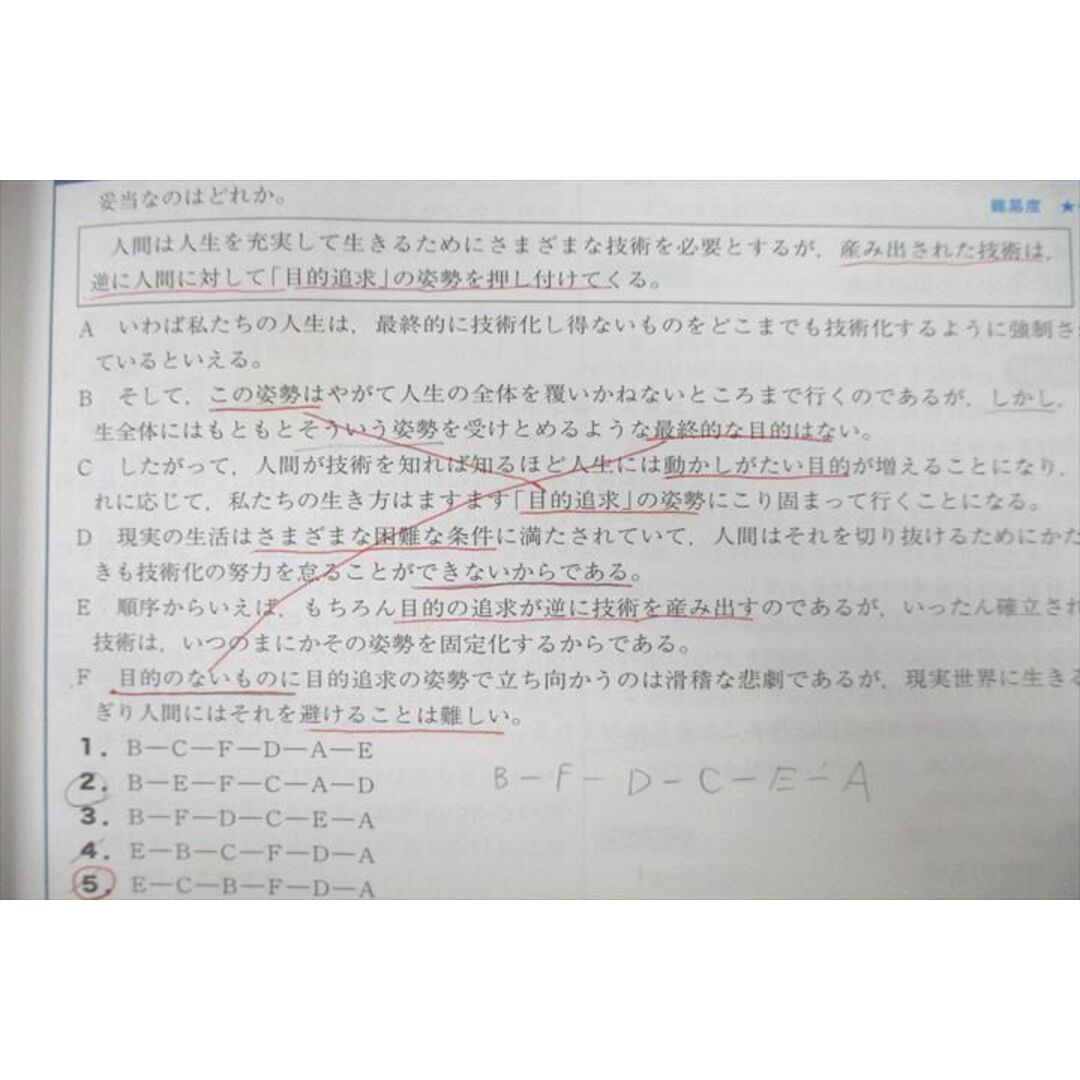 妥当なのはどれか。
難易度 ★
人間は人生を充実して生きるためにさまざまな技術を必要とするが，産み出された技術は，
逆に人間に対して「目的追求」の姿勢を押し付けてくる。
A いわば私たちの人生は，最終的に技術化し得ないものをどこまでも技術化するように強制さ
ているといえる。
B そして，この姿勢はやがて人生の全体を覆いかねないところまで行くのであるが，しかし，
生全体にはもともとそういう姿勢を受けとめるような最終的な目的はない。
C したがって，人間が技術を知れば知るほど人生には動かしがたい目的が増えることになり，
れに応じて，私たちの生き方はますます「目的追求」の姿勢にこり固まって行くことになる。
D 現実の生活はさまざまな困難な条件に満たされていて，人間はそれを切り抜けるためにかた
きも技術化の努力を怠ることができないからである。
E 順序からいえば，もちろん目的の追求が逆に技術を産み出すのであるが，いったん確立され
技術は，いつのまにかその姿勢を固定化するからである。
F 目的のないものに目的追求の姿勢で立ち向かうのは滑稽な悲劇であるが，現実世界に生きる
ぎり人間にはそれを避けることは難しい。
1．B－C－F－D－A－E
2．B－E－F－C－A－D
B－F－D－C－E－A
3．B－F－D－C－E－A
4．E－B－C－F－D－A
5．E－C－B－F－D－A